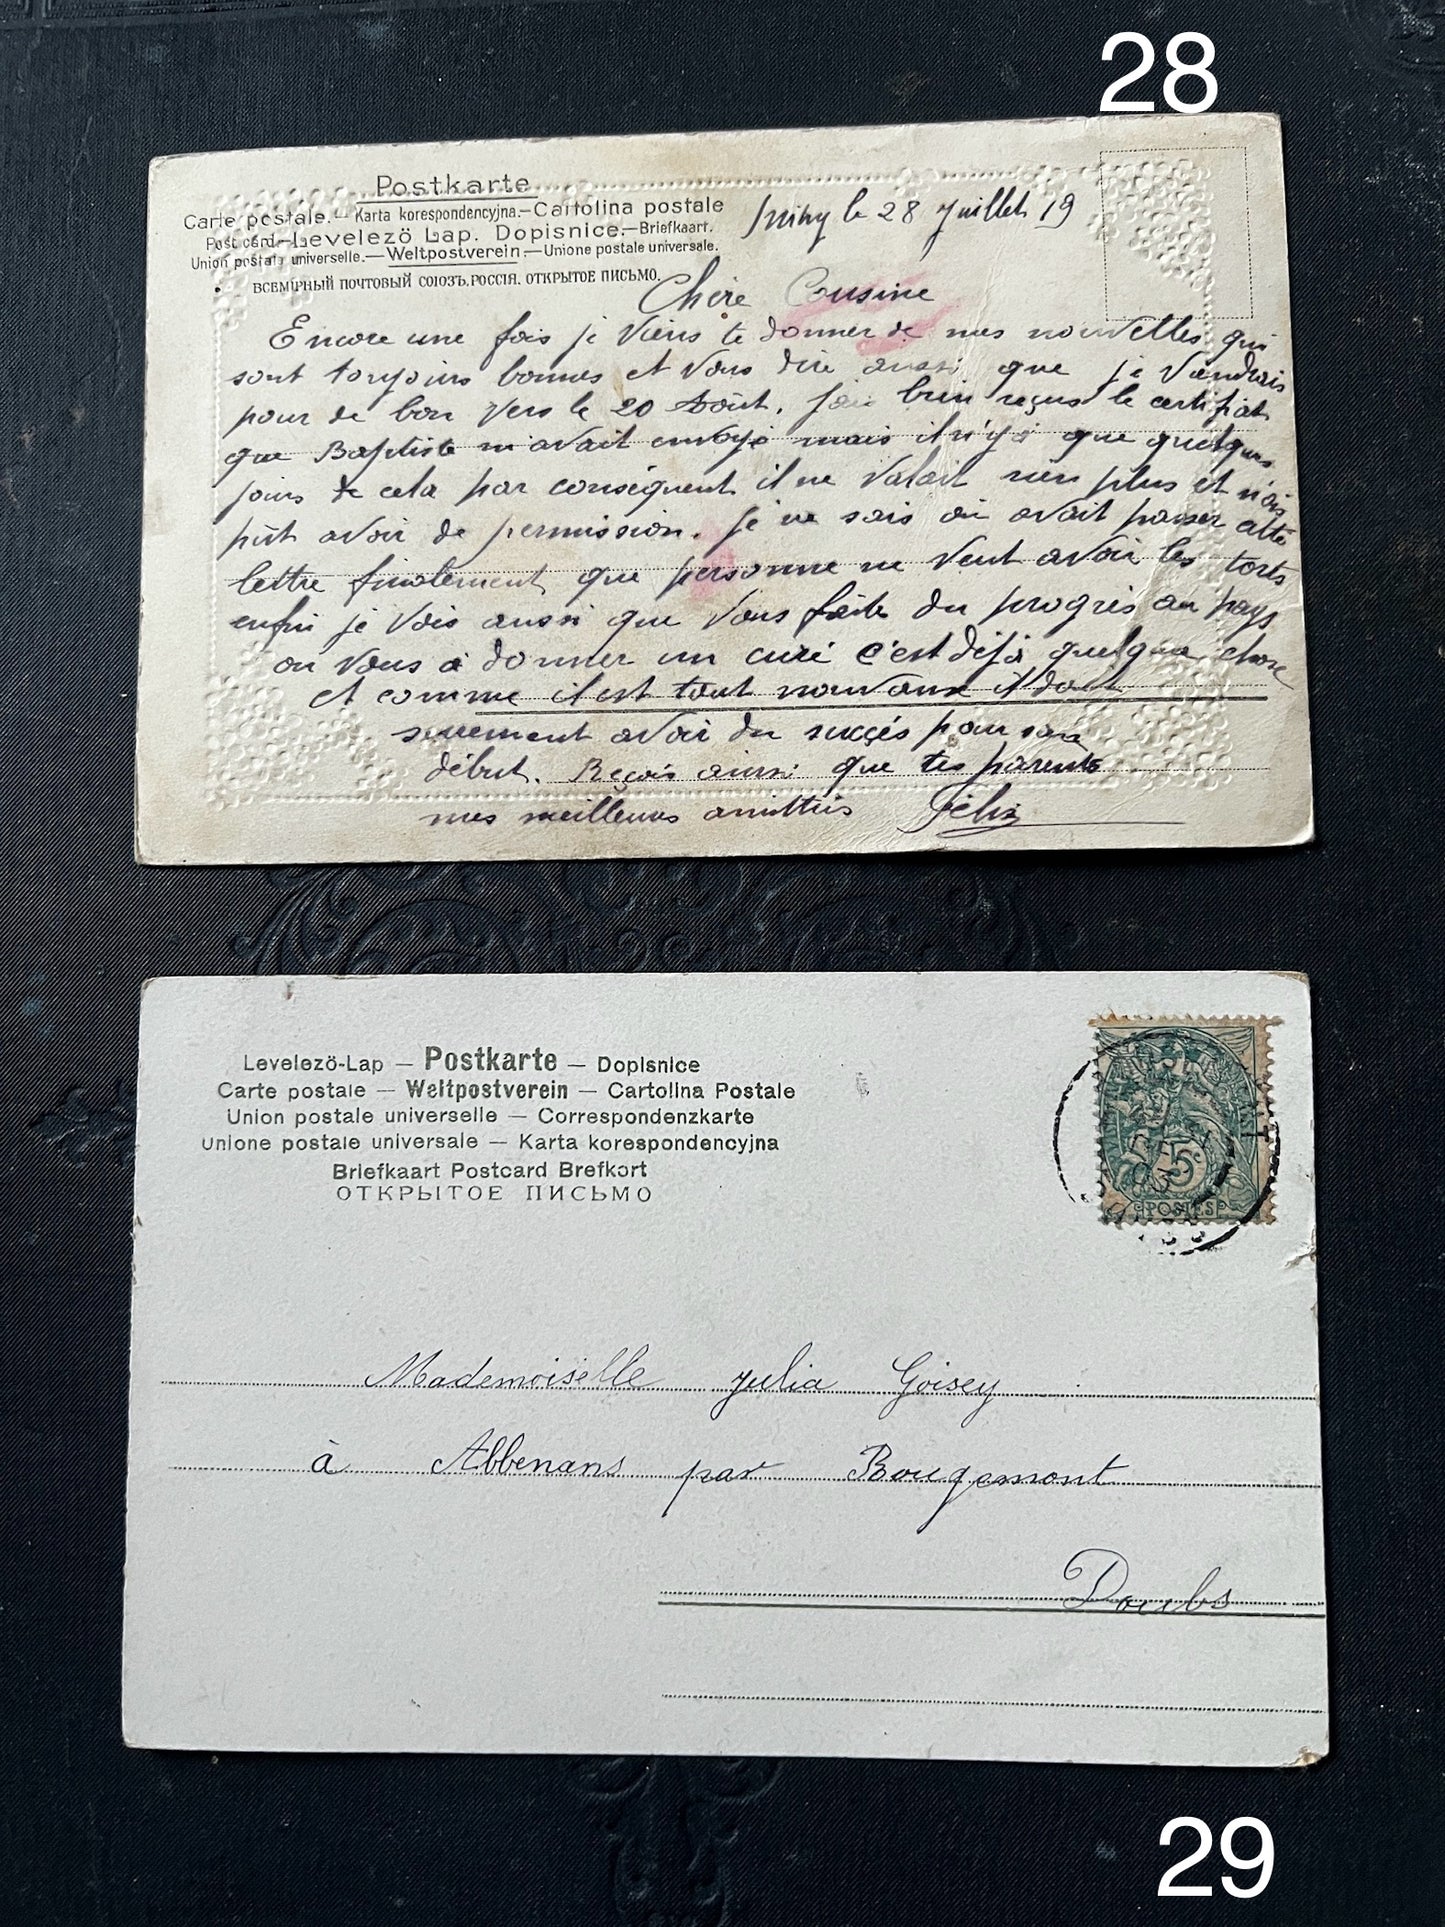 28
Postkarte
Carte postale.—Karta korespondencyjna.—Cartolina postale
Post card—Levelezö Lap. Dopisnice.—Briefkaart.
Union postale universelle.—Weltpostverein.—Unione postale universale.
ВСЕМІРНЫЙ ПОЧТОВЫЙ СОЮЗЪ.РОССІЯ. ОТКРЫТОЕ ПИСЬМО.
le 28 Juillet 19
Chère Cousine
Encore une fois je viens te donner de mes nouvelles qui
sont toujours bonnes et vous dire aussi que je viendrais
pour de bon vers le 20 Août. J'ai bien reçus le certifiat
que Baptiste m'avait envoyé mais il n'y a que quelques
jours de cela par conséquent il ne valait rien plus et n'ais
pût avoir de permission. Je ne sais où avait passer cette
lettre finalement que personne ne veut avoir les torts
enfin je vois aussi que vous faite du progrès au pays
on vous à donner un curé c'est déjà quelque chose
et comme il est tout nouveaux il doit
surement avoir du succés pour son
début. Reçois ainsi que tes parents
mes meilleures amittiés Félix
Levelezö-Lap — Postkarte — Dopisnice
Carte postale — Weltpostverein — Cartolina Postale
Union postale universelle — Correspondenzkarte
Unione postale universale — Karta korespondencyjna
Briefkaart Postcard Brefkort
ОТКРЫТОЕ ПИСЬМО
5c
POSTES
Mademoiselle Julia Goisey
à Abbenans par Bougemont
Doubs
29